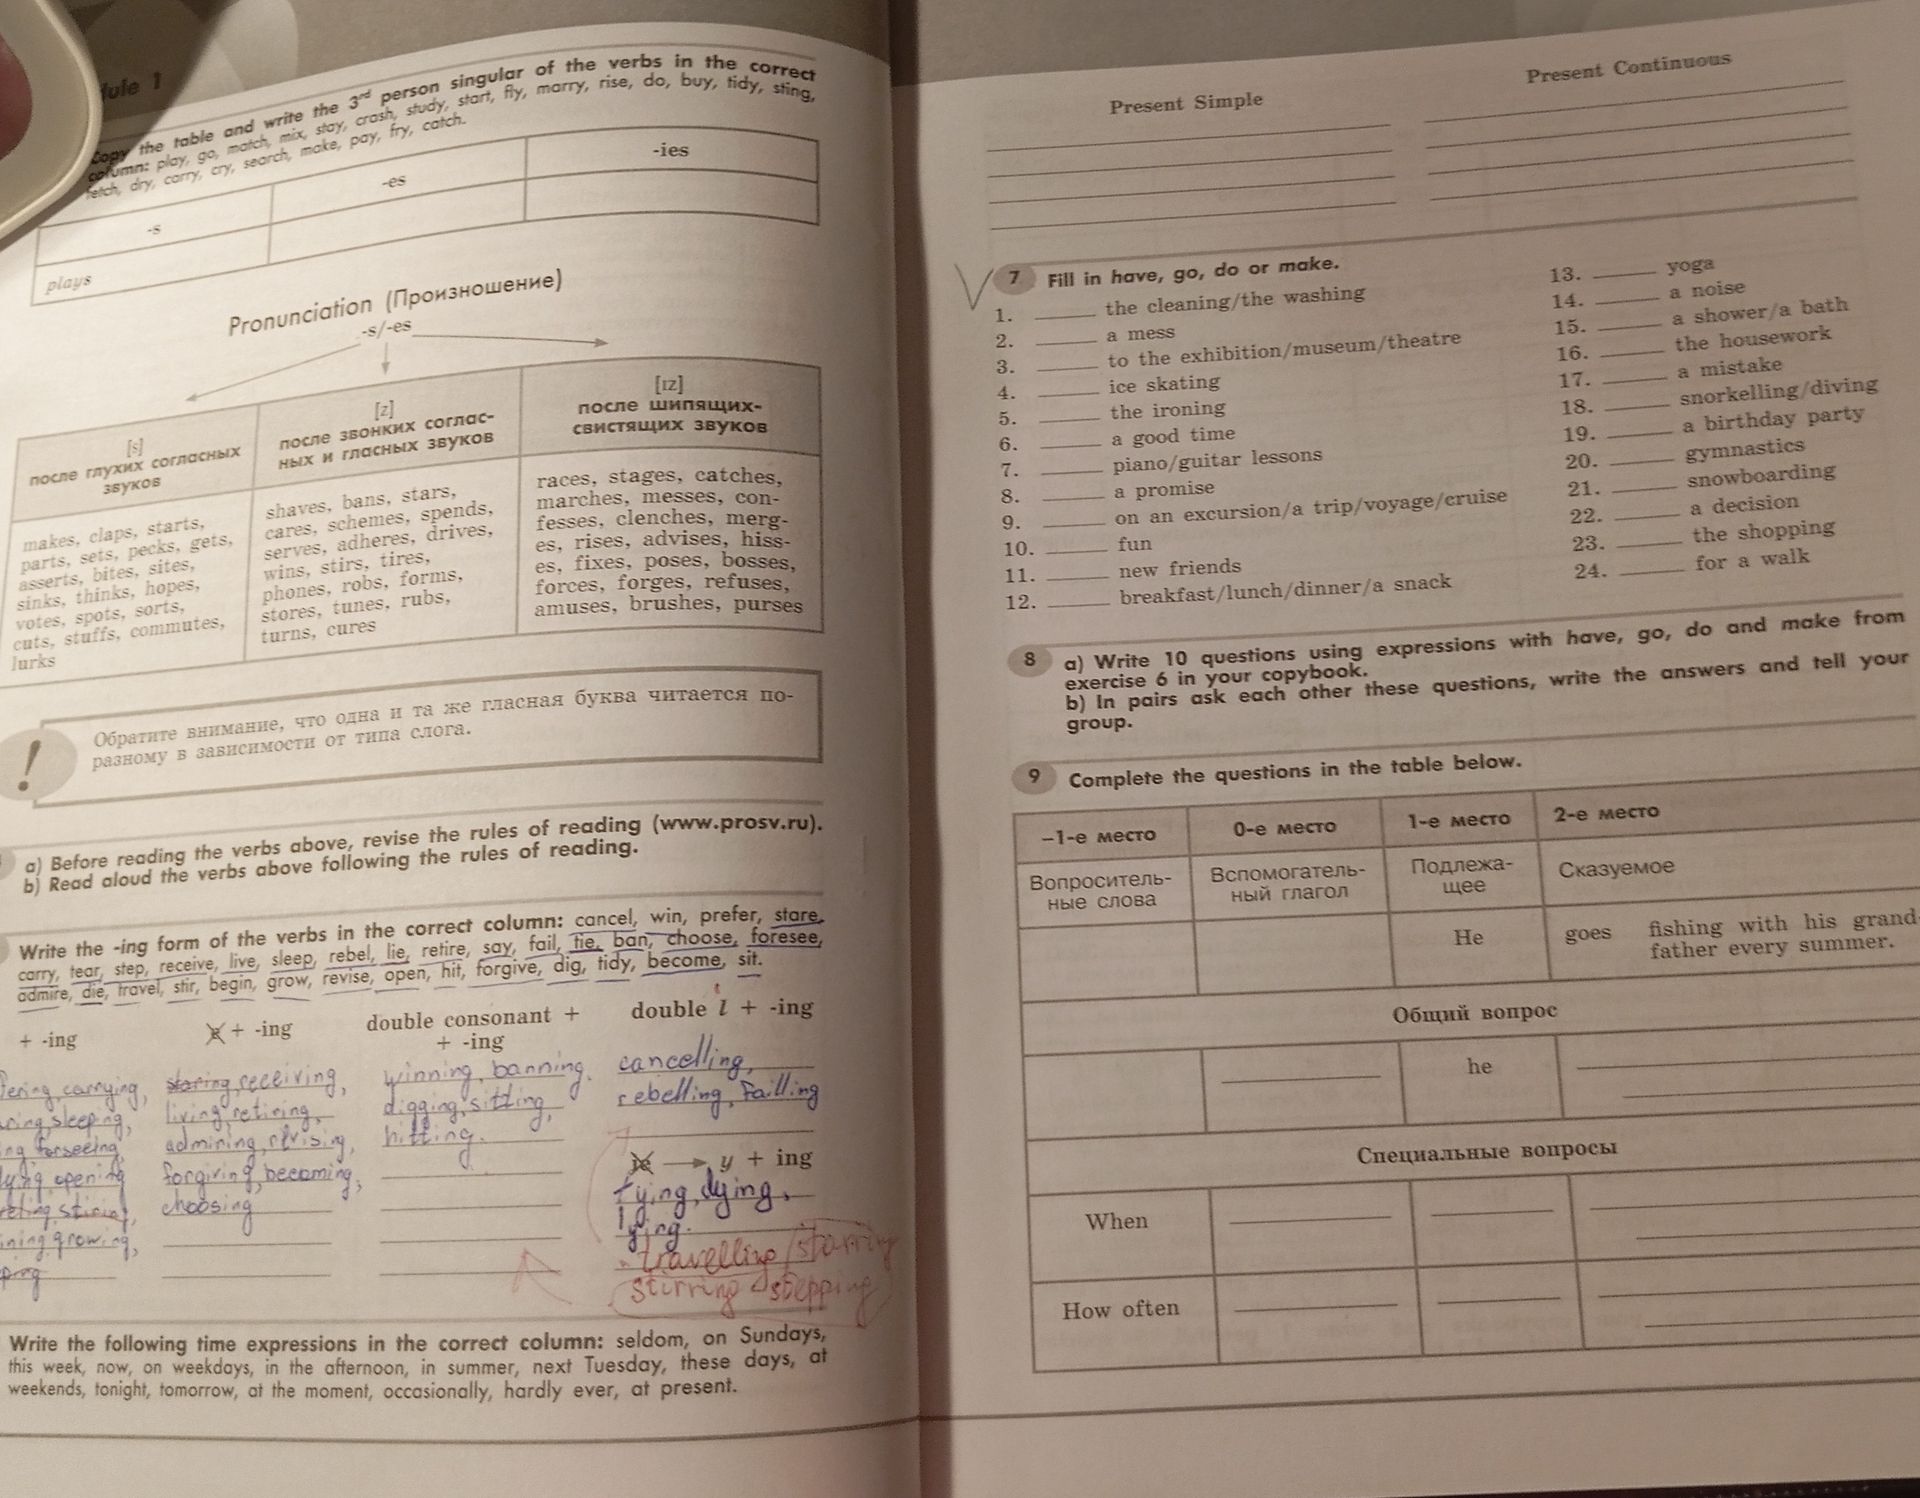 dule 1
Copy the table and write the 3rd person singular of the verbs in the correct
column: play, go, match, mix, stay, crash, study, start, fly, marry, rise, do, buy, tidy, sting,
fetch, dry, carry, cry, search, make, pay, fry, catch.
-s
-es
-ies
plays
Pronunciation (Произношение)
-s/-es
[s]
после глухих согласных
звуков
[z]
после звонких соглас-
ных и гласных звуков
[ız]
после шипящих-
свистящих звуков
makes, claps, starts,
parts, sets, pecks, gets,
asserts, bites, sites,
sinks, thinks, hopes,
votes, spots, sorts,
cuts, stuffs, commutes,
lurks
shaves, bans, stars,
cares, schemes, spends,
serves, adheres, drives,
wins, stirs, tires,
phones, robs, forms,
stores, tunes, rubs,
turns, cures
races, stages, catches,
marches, messes, con-
fesses, clenches, merg-
es, rises, advises, hiss-
es, fixes, poses, bosses,
forces, forges, refuses,
amuses, brushes, purses
!
Обратите внимание, что одна и та же гласная буква читается по-
разному в зависимости от типа слога.
a) Before reading the verbs above, revise the rules of reading (www.prosv.ru).
b) Read aloud the verbs above following the rules of reading.
Write the -ing form of the verbs in the correct column: cancel, win, prefer, stare,
carry, tear, step, receive, live, sleep, rebel, lie, retire, say, fail, tie, ban, choose, foresee,
admire, die, travel, stir, begin, grow, revise, open, hit, forgive, dig, tidy, become, sit.
+ -ing
e + -ing
double consonant +
+ -ing
double l + -ing
carrying,
sleeping,
forseeing,
opening
stiring,
growing,
staring, receiving,
living, retiring,
admiring, revising,
forgiving, becoming,
choosing
winning, banning.
digging, sitting,
hitting.
cancelling,
rebelling, failling
ie → y + ing
tying, dying,
lying.
travelling / starring
stirring stepping
Write the following time expressions in the correct column: seldom, on Sundays,
this week, now, on weekdays, in the afternoon, in summer, next Tuesday, these days, at
weekends, tonight, tomorrow, at the moment, occasionally, hardly ever, at present.
Present Simple
Present Continuous
7 Fill in have, go, do or make.
1. ______ the cleaning/the washing
2. ______ a mess
3. ______ to the exhibition/museum/theatre
4. ______ ice skating
5. ______ the ironing
6. ______ a good time
7. ______ piano/guitar lessons
8. ______ a promise
9. ______ on an excursion/a trip/voyage/cruise
10. ______ fun
11. ______ new friends
12. ______ breakfast/lunch/dinner/a snack
13. ______ yoga
14. ______ a noise
15. ______ a shower/a bath
16. ______ the housework
17. ______ a mistake
18. ______ snorkelling/diving
19. ______ a birthday party
20. ______ gymnastics
21. ______ snowboarding
22. ______ a decision
23. ______ the shopping
24. ______ for a walk
8 a) Write 10 questions using expressions with have, go, do and make from
exercise 6 in your copybook.
b) In pairs ask each other these questions, write the answers and tell your
group.
9 Complete the questions in the table below.
–1-е место
0-е место
1-е место
2-е место
Вопроситель-
ные слова
Вспомогатель-
ный глагол
Подлежа-
щее
Сказуемое
He
goes
fishing with his grand-
father every summer.
Общий вопрос
he
Специальные вопросы
When
How often